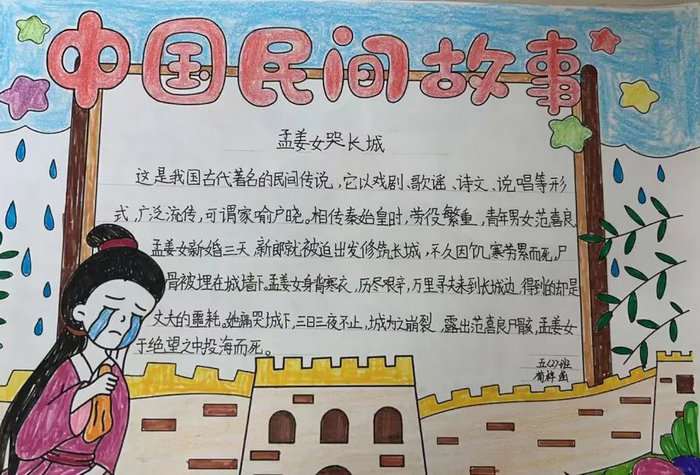 中国民间故事
孟姜女哭长城
这是我国古代著名的民间传说，它以戏剧、歌谣、诗文、说唱等形
式，广泛流传，可谓家喻户晓。相传秦始皇时，劳役繁重，青年男女范喜良
孟姜女新婚三天，新郎就被迫出发修筑长城，不久因饥寒劳累而死，尸
骨被埋在城墙下。孟姜女身背寒衣，历尽艰辛，万里寻夫来到长城边，得到的却是
丈夫的噩耗。她痛哭城下，三日三夜不止，城为之崩裂，露出范喜良尸骸，孟姜女
于绝望之中投海而死。
五(2)班